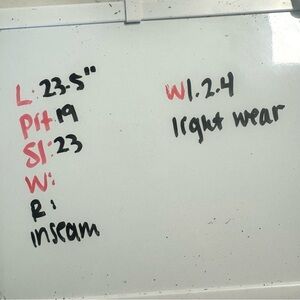 L: 23.5"
Pit 19
Sl: 23
W:
R:
inseam
W1.2.4
light wear